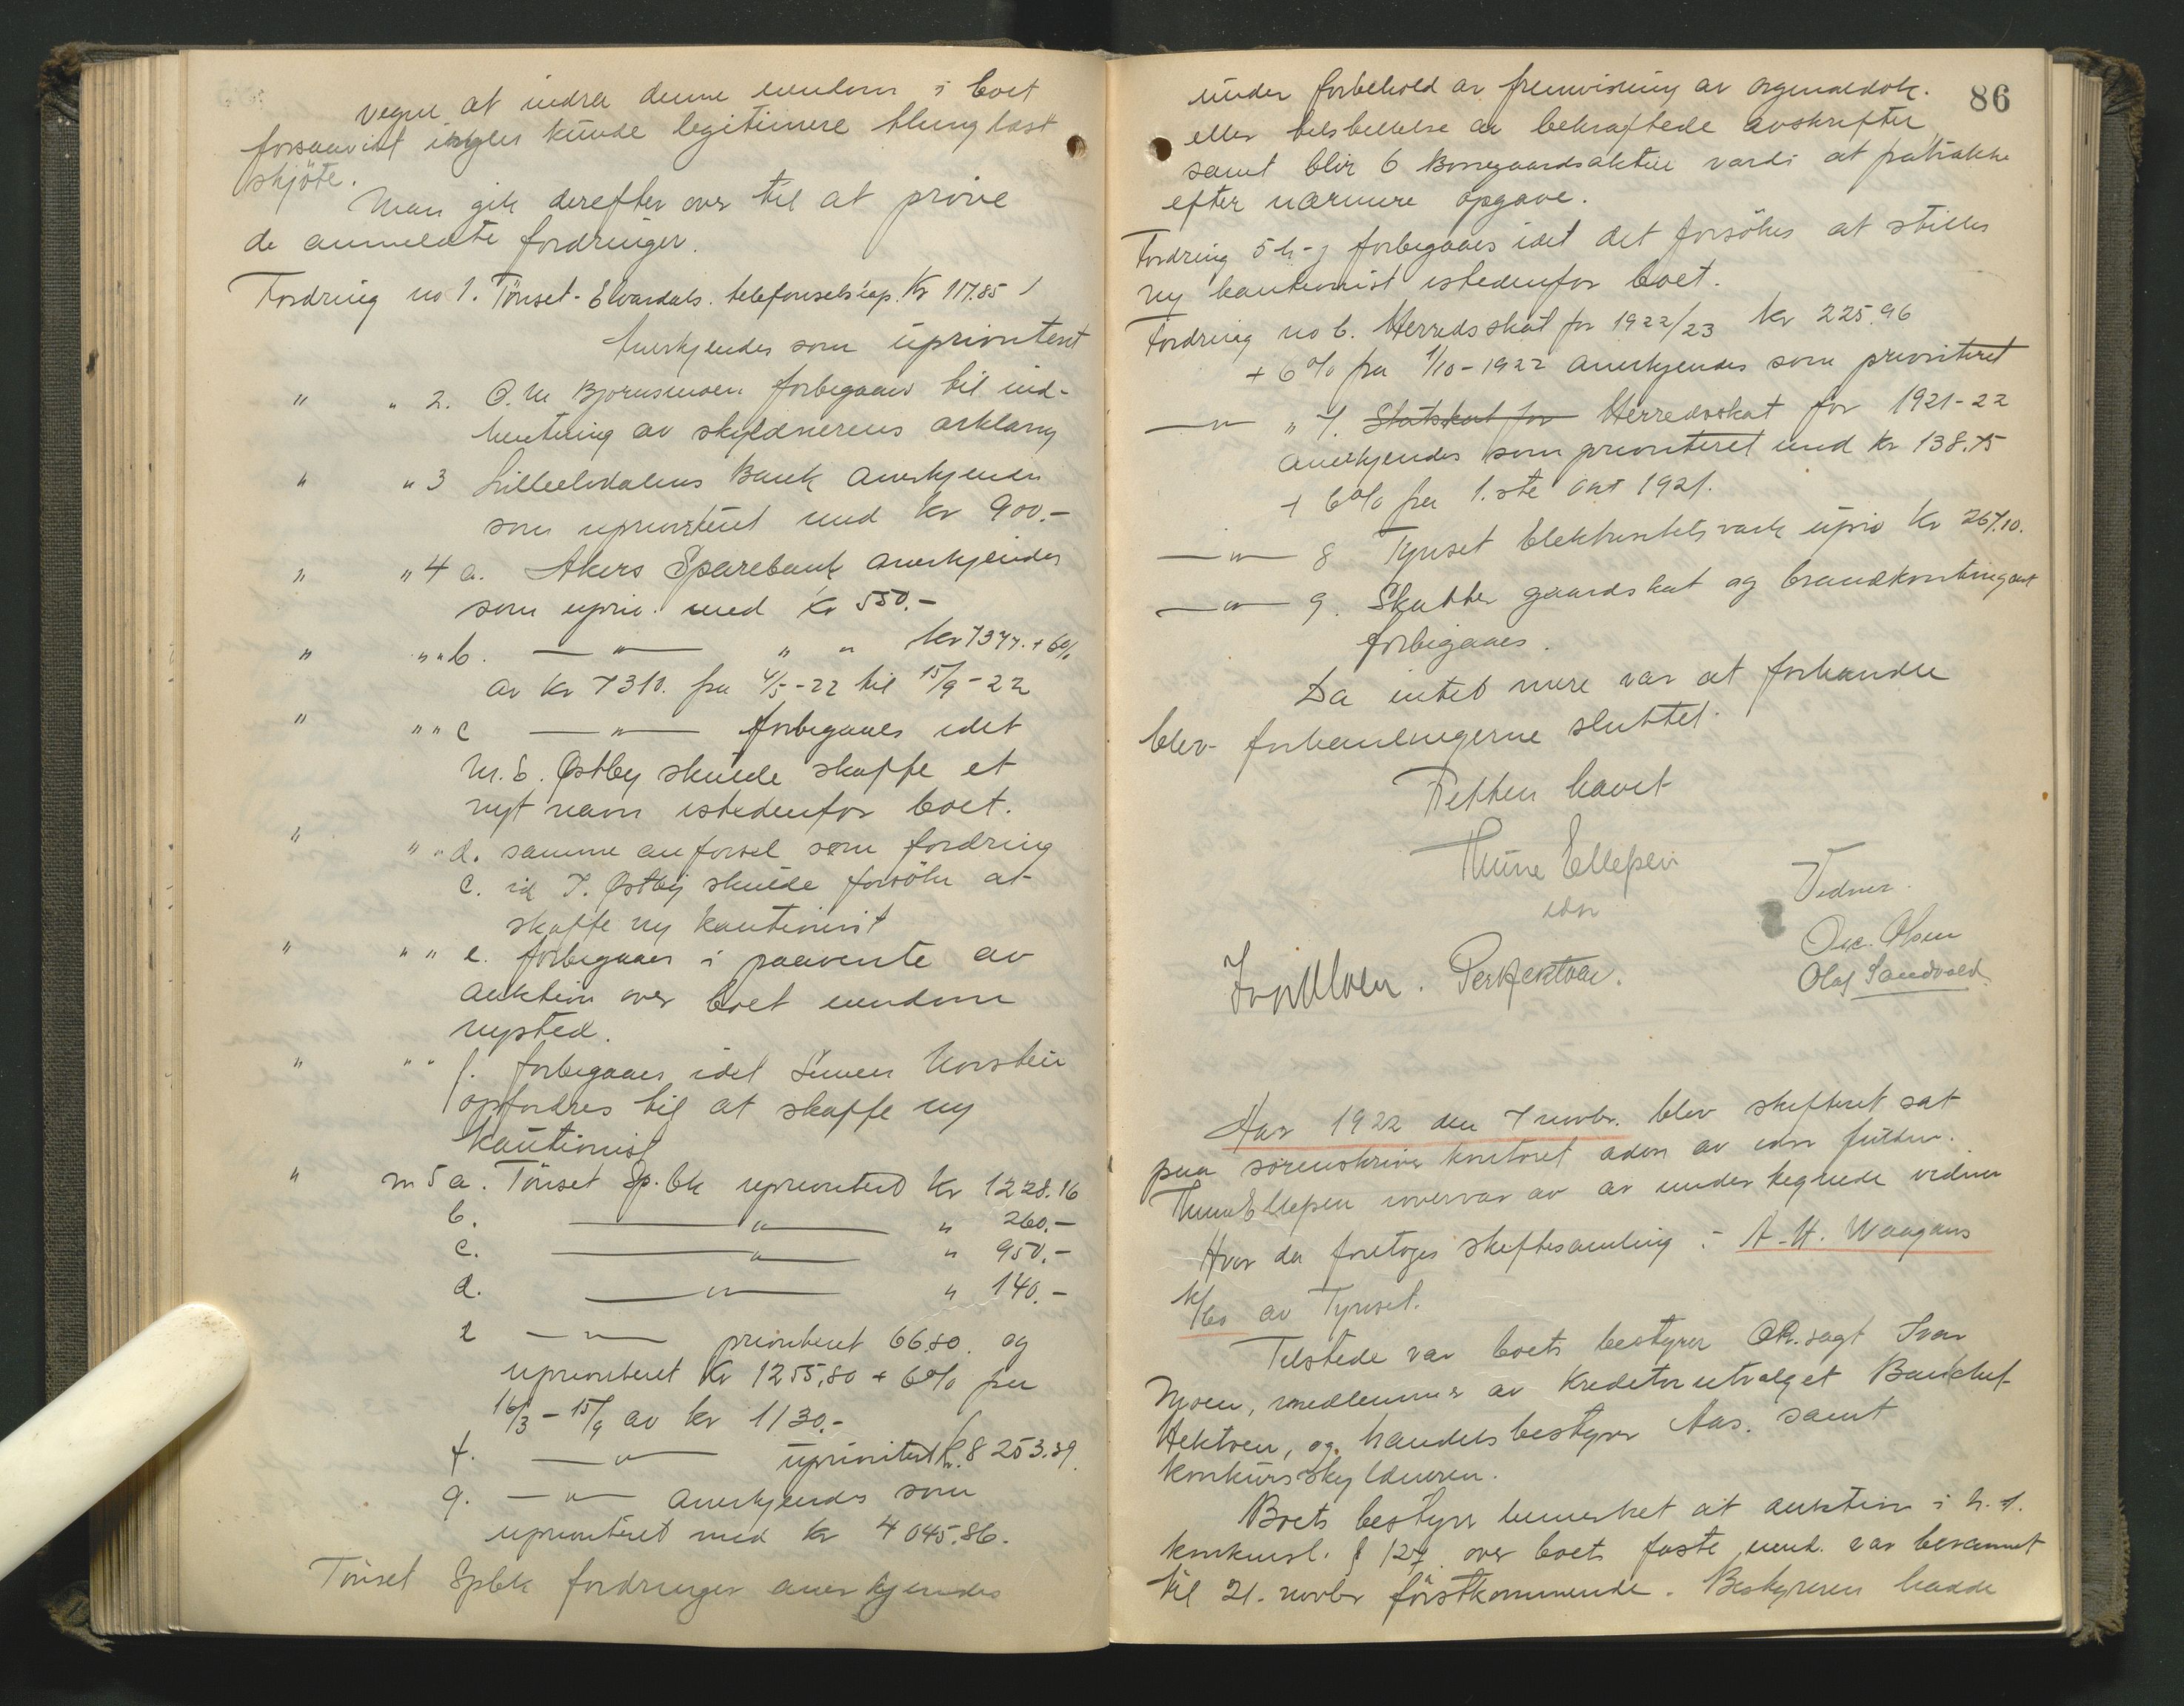 vegne at indra denne eiendom i boet
forsaavidt ingen kunde legitimere tinglæst
skjöte.
Man gik derefter over til at pröve
de anmeldte fordringer.
Fordring no 1. Tönset-Elvardals. telefonselskap. Kr 117.85
Anerkjendes som uprioritert
" " 2. O. M Bjornsmoen forbigaaes til ind-
hentning av skyldnerens erklæring
" " 3 Lilleelvdalens Bank anerkjendes
som uprioriteret med kr 900.-
" " 4 a. Akers Sparebank anerkjendes
som uprio. med kr 550.-
" " " b. — " — " " kr 7377. + 6%
av kr 7310. fra 4/5-22 til 15/9-22
" " " c — " — forbigaaes idet
M. E. Østby skulde skaffe et
nyt navn istedenfor boet.
" " " d. samme anförsel som fordring
c. id T. Østby skulde forsöke at
skaffe ny kautionist
" " " e. forbigaaes i paavente av
auktion over boets eiendom
nysted.
" " " f. forbigaaes idet Simen Korsteie
opfordres til at skaffe ny
kautionist
" no 5 a. Tönset Sp.bk uprioritert kr 1228.16
b. — " — " 260.-
c. — " — " 950.-
d. — " — " 140.-
e — " — prioriteret 66.80. og
uprioriteret kr 1255,80 + 6% fra
16/3 - 15/9 av kr 1130.-
f. — " — uprioritert kr. 8253.39.
g. — " — anerkjendes som
uprioritert med kr 4045.86.
Tönset Spbk fordringer anerkjendes
86
under forbehold av fremvisning av orginaldok.
eller tilstillelse av bekræftede avskrifter
samt blir 6 Borregaardsaktier værdi at fratrække
efter nærmere opgave.
Fordring 5 h-j forbigaaes idet det forsökes at stilles
ny kautionist istedenfor boet.
Fordring no 6. Herredsskat for 1922/23 kr 225.96
+ 6% fra 1/10-1922 anerkjendes som prioriteret
— " — " 7. Statskat for Herredsskat for 1921-22
anerkjendes som prioriteret med kr 138.75
+ 6% fra 1.ste Okt 1921.
— " — 8 Tynset Elektricitetsværk uprio kr 267.10.
— " — 9. Skatter gaardskat og brandkontingent
forbigaaes.
Da intet mere var at forhandle
blev forhandlingerne sluttet.
Retten hævet
Thune Ellefsen
edsv
Vidner.
Osc. Olsen
Olaf Sandvold
Ivar Moen. Per Hektoen.
Aar 1922 den 7 novbr. blev skifteret sat
paa sorenskriverkontoret adm av edsv fuldm.
Thune Ellefsen i overvær av av undertegnede vidner
Hvor da foretoges skiftesamling i A. H. Waagans
k/bo av Tynset.
Tilstede var boets bestyrer OR.sagf Ivar
Moen, medlemmer av kreditorutvalget Bankchef
Hektoen, og handelsbestyrer Aas. samt
konkursskyldneren.
Boets bestyrer bemerket at auktion i h. t.
konkursl. § 127 over boets faste eiend. var berammet
til 21. novbr förstkommende. Bestyreren hadde